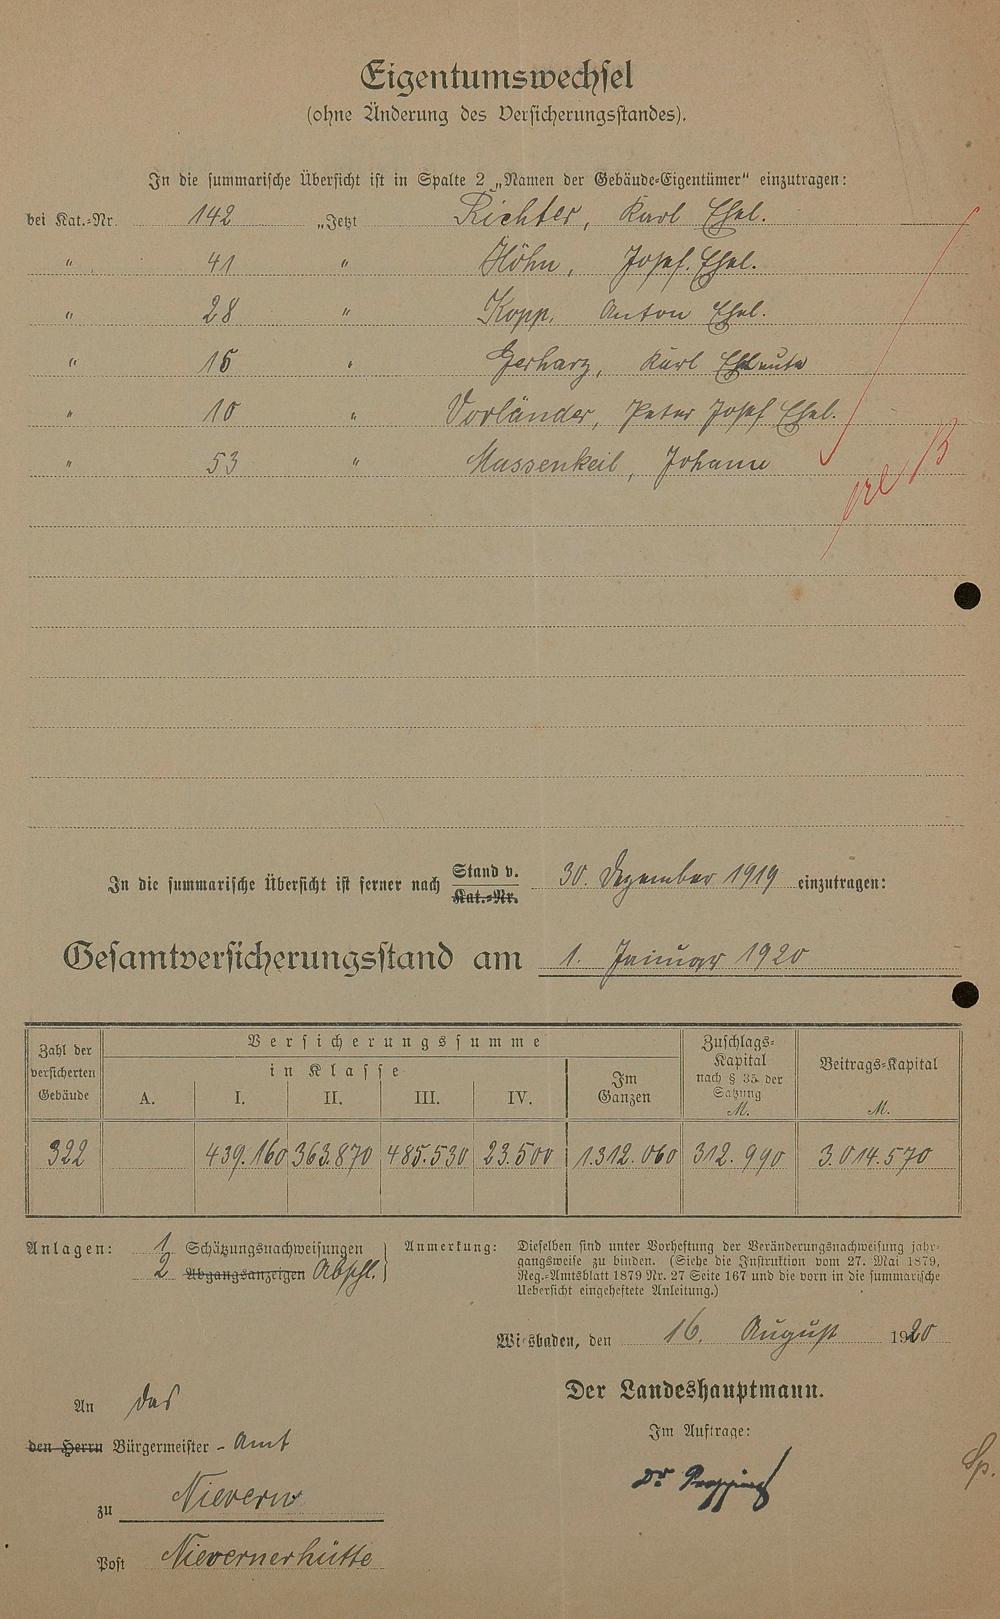 Eigentumswechsel
(ohne Änderung des Versicherungsstandes).
In die summarische Übersicht ist in Spalte 2 „Namen der Gebäude-Eigentümer" einzutragen:
bei Kat.-Nr. 142 „Jetzt Richter, Karl Ehel.
" 41 " Höhn, Josef. Ehel.
" 28 " Kopp, Anton Ehel.
" 15 " Gerharz, Karl Eheleute
" 10 " Vorländer, Peter Josef Ehel.
" 53 " Massenkeil, Johann
In die summarische Übersicht ist ferner nach Stand v. 30. Dezember 1919 einzutragen:
Kat.-Nr.
Gesamtversicherungsstand am 1. Januar 1920
Zahl der versicherten Gebäude
Versicherungssumme
in Klasse
A. I. II. III. IV.
Im Ganzen
Zuschlags-Kapital nach § 35 der Satzung M.
Beitrags-Kapital M.
322 439.160 363.870 485.530 23.500 1.312.060 312.990 3.014.570
Anlagen: 1 Schätzungsnachweisungen
2 Abgangsanzeigen Abschl.
Anmerkung: Dieselben sind unter Vorheftung der Veränderungsnachweisung jahr-
gangsweise zu binden. (Siehe die Instruktion vom 27. Mai 1879,
Reg.-Amtsblatt 1879 Nr. 27 Seite 167 und die vorn in die summarische
Uebersicht eingeheftete Anleitung.)
Wiesbaden, den 16. August 1920
Der Landeshauptmann.
Im Auftrage:
An das
den Herrn Bürgermeister-Amt
zu Nievern
Post Nievernerhütte
Sp.